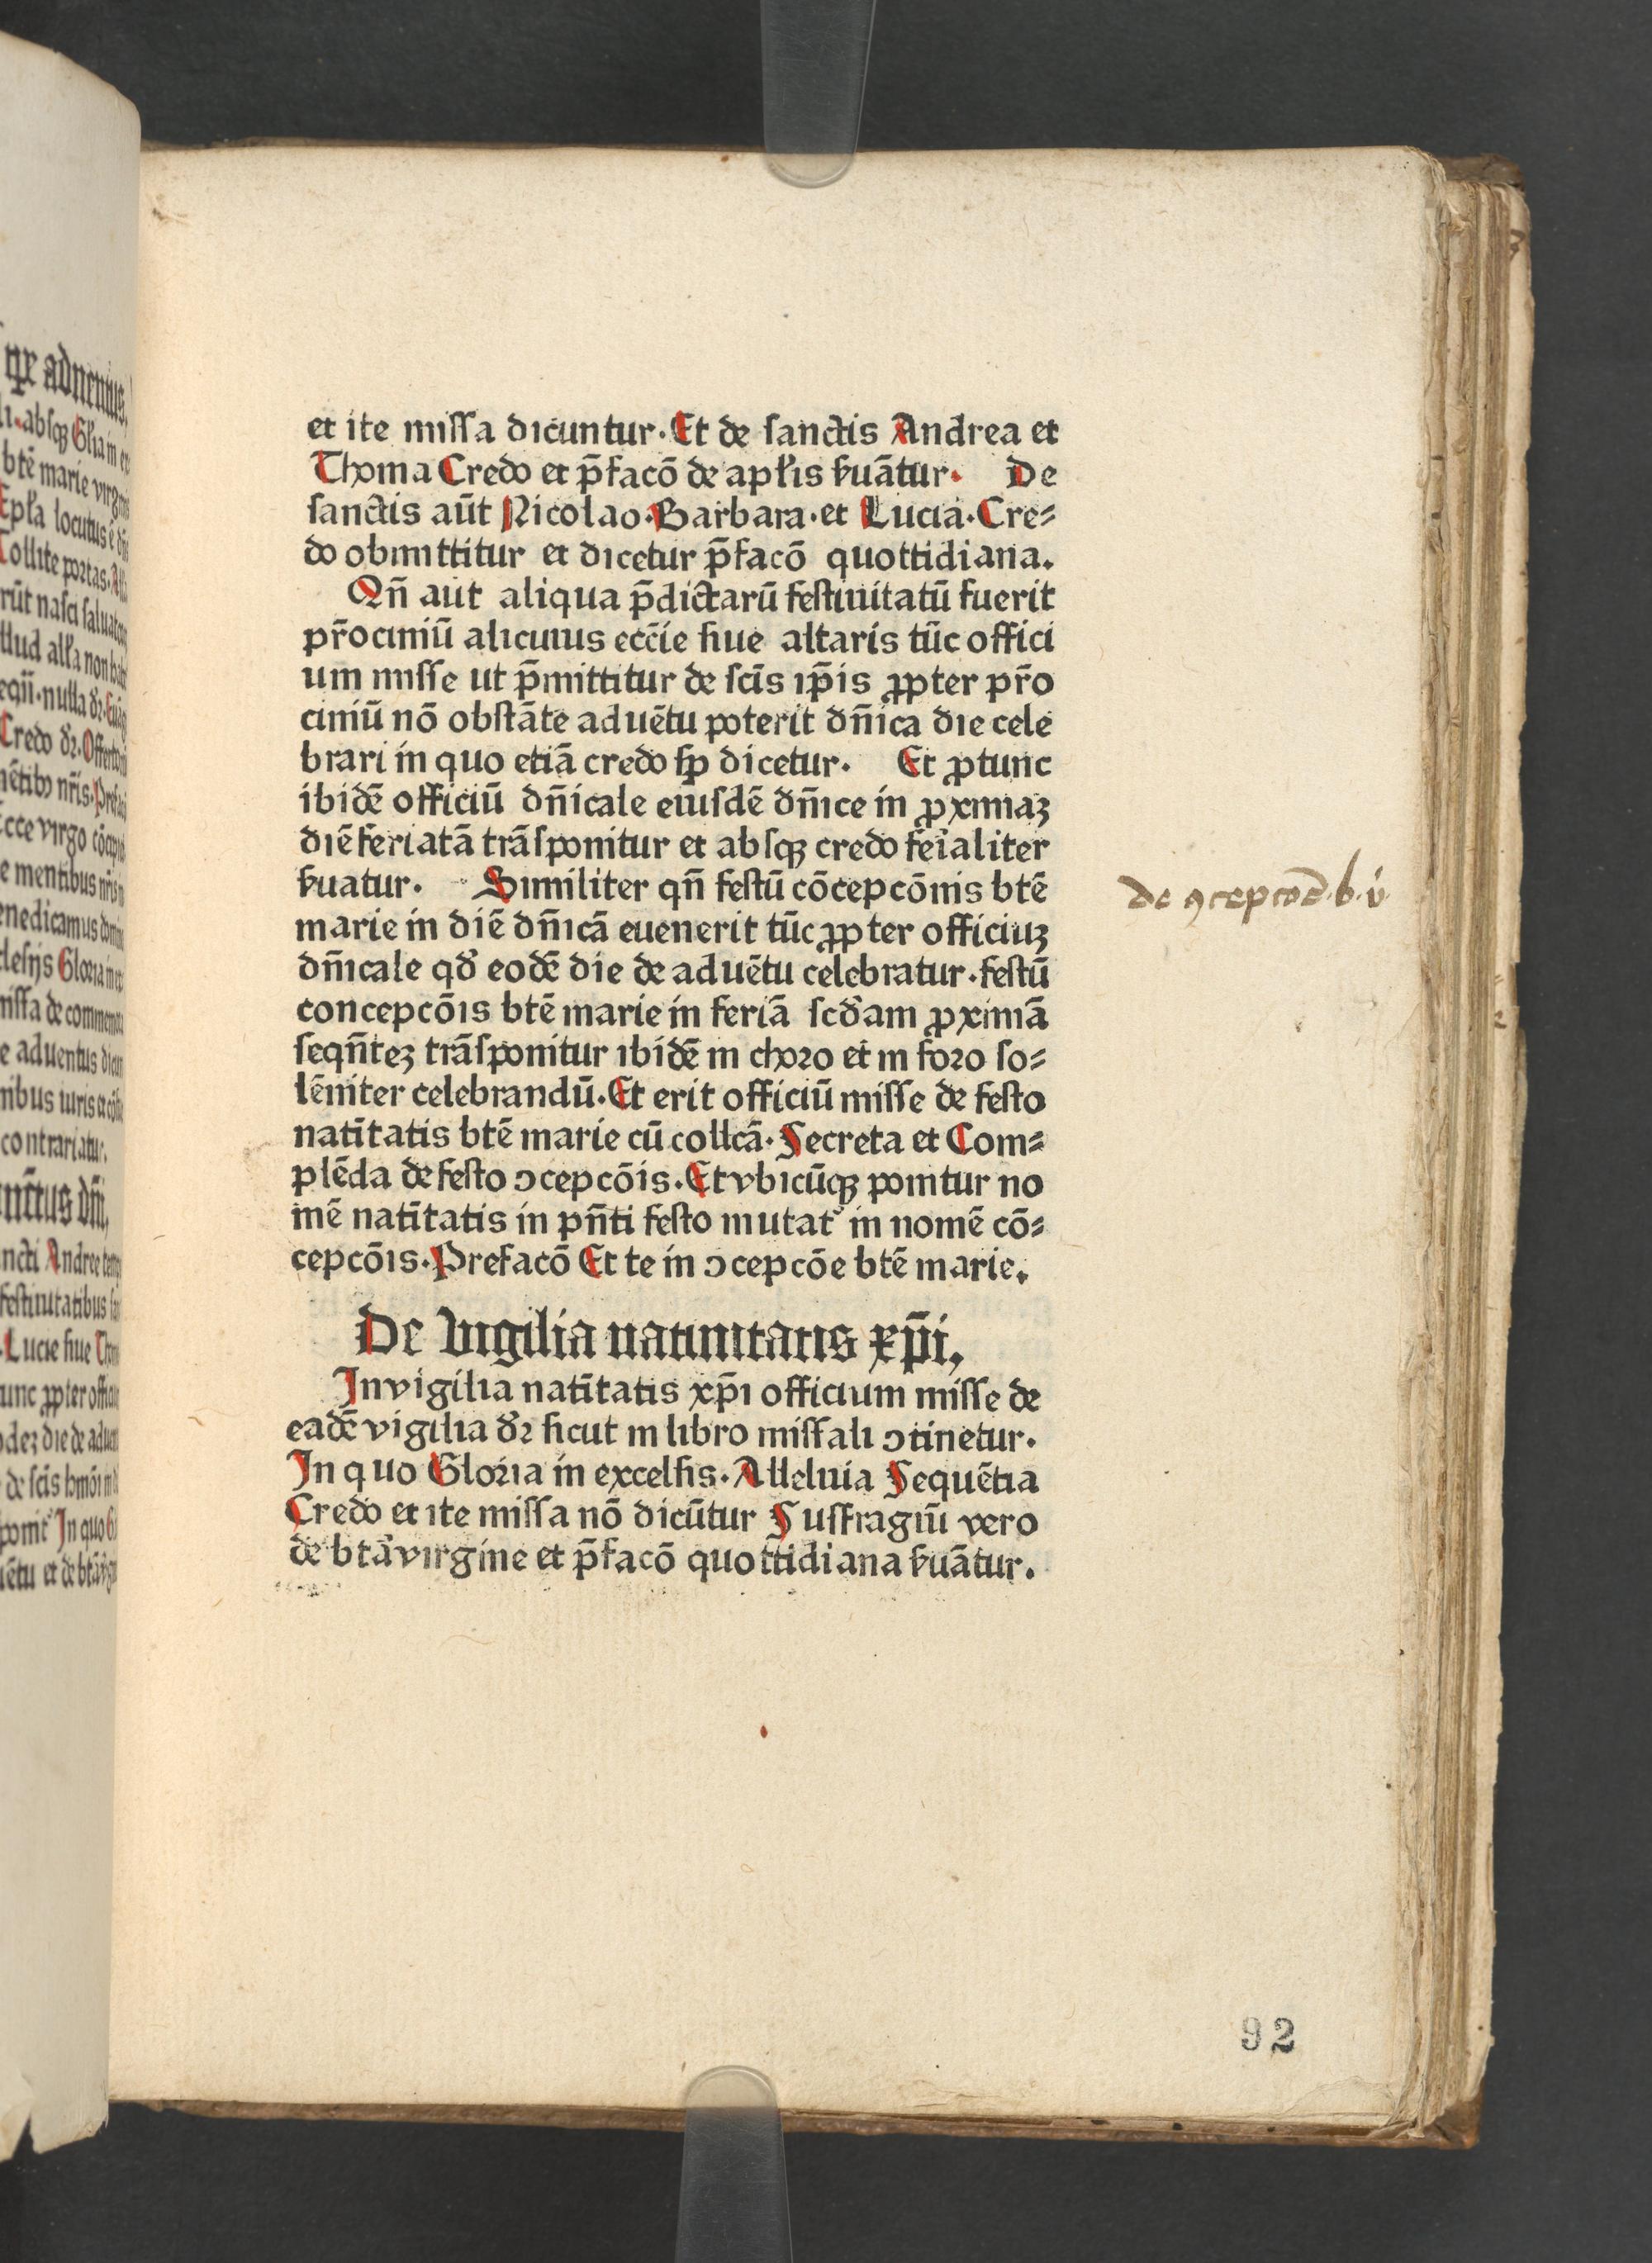 et ite missa dicuntur. Et de sanctis Andrea et
Thoma Credo et p̄facō de apłis ẜuātur. De
sanctis aūt Nicolao. Barbara. et Lucia. Cre⸗
do obmittitur et dicetur p̄facō quottidiana.
Qn̄ aūt aliqua p̄dictarū festiuitatū fuerit
pr̄ociniū alicuius eccīe siue altaris tūc offici
um misse ut p̄mittitur de scīs ip̄is ꝓpter pr̄o
ciniū nō obstāte aduētu poterit dn̄ica die cele
brari in quo etiā credo sꝑ dicetur. Et ꝓtunc
ibidē officiū dn̄icale eiusdē dn̄ice in ꝓximaꝫ
diē feriatā trāsponitur et absqꝫ credo fe͛ialiter
ẜuatur. Similiter qn̄ festū cōcepcōnis btē
marie in diē dn̄icā euenerit tūc ꝓpter officiuꝫ
dn̄icale qđ eodē die de aduētu celebratur. festū
concepcōis btē marie in feriā scđam ꝓximā
seqn̄teꝫ trāsponitur ibidē in choro et in foro so⸗
lēniter celebrandū. Et erit officiū misse de festo
natīitatis btē marie cū collcā. Secreta et Com⸗
plēda de festo ↄcepcōis. Et vbicūqꝫ ponitur no
mē natīitatis in pn̄ti festo mutat᷑ in nomē cō⸗
cepcōis. Prefacō Et te in ↄcepcōe btē marie.
De Vigilia natiuitatis xp̄i.
In vigilia natīitatis xp̄i officium misse de
eadē vigilia dꝛ sicut in libro missali ↄtinetur.
In quo Gloria in excelsis. Alleluia Sequētia
Credo et ite missa nō dicūtur Suffragiū vero
de btā virgine et p̄facō quottidiana ẜuātur.
de ꝯcepcōe .b. v̇
92